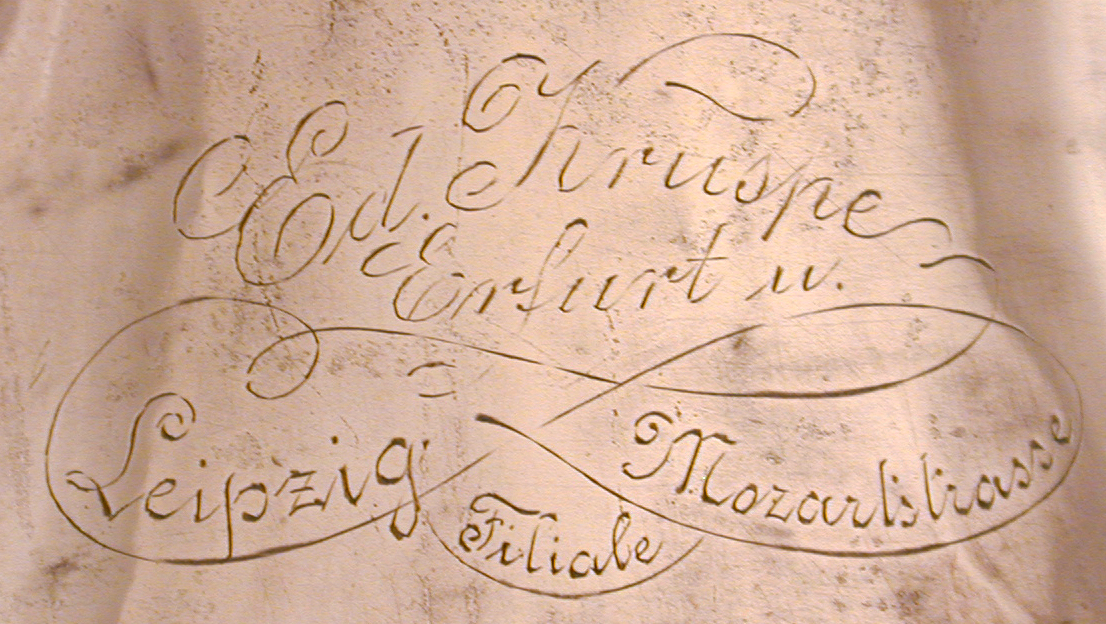 Ed. Kruspe
Erfurt u.
Leipzig
Filiale
Mozartstrasse